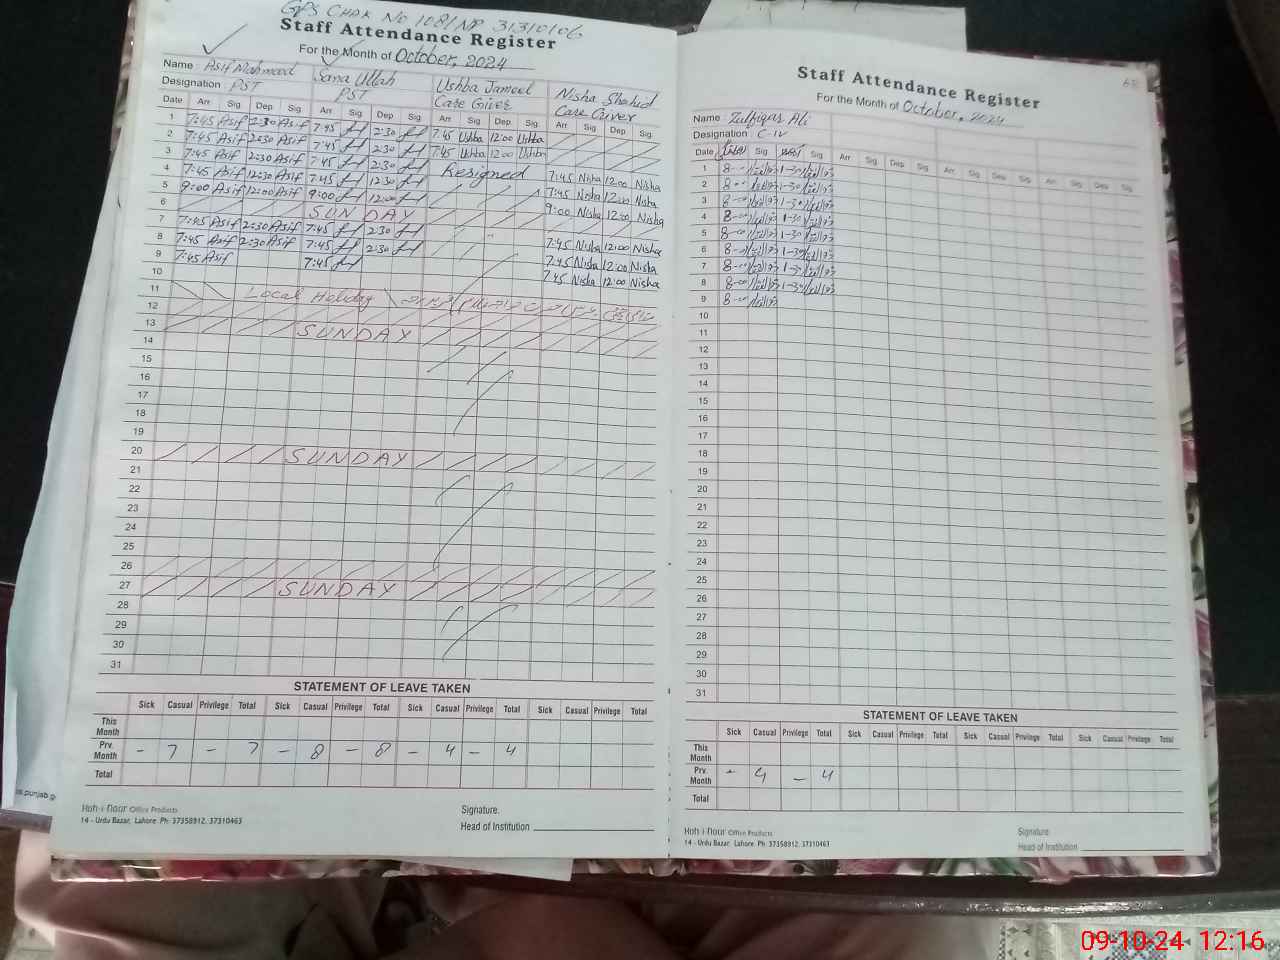 GPS CHAK NO 108/NP 31310106
Staff Attendance Register
For the Month of October, 2024
Name : Asif Mahmood Sana Ullah Ushba Jameel Nisha Shahid
Designation : PST PST Care Giver Care Giver
Date Arr Sig. Dep Sig. Arr Sig. Dep Sig. Arr Sig. Dep. Sig. Arr Sig. Dep. Sig.
1 7:45 Asif 2:30 Asif 7:45 2:30 7:45 Ushba 12:00 Ushba
2 7:45 Asif 2:30 Asif 7:45 2:30 7:45 Ushba 12:00 Ushba
3 7:45 Asif 2:30 Asif 7:45 2:30 Resigned 7:45 Nisha 12:00 Nisha
4 7:45 Asif 12:30 Asif 7:45 12:30 7:45 Nisha 12:00 Nisha
5 9:00 Asif 12:00 Asif 9:00 12:00 9:00 Nisha 12:00 Nisha
6 SUNDAY
7 7:45 Asif 2:30 Asif 7:45 2:30 7:45 Nisha 12:00 Nisha
8 7:45 Asif 2:30 Asif 7:45 2:30 7:45 Nisha 12:00 Nisha
9 7:45 Asif 7:45 7:45 Nisha 12:00 Nisha
10
11 Local Holiday
12
13 SUNDAY
14
15
16
17
18
19
20 SUNDAY
21
22
23
24
25
26
27 SUNDAY
28
29
30
31
STATEMENT OF LEAVE TAKEN
Sick Casual Privilege Total Sick Casual Privilege Total Sick Casual Privilege Total Sick Casual Privilege Total
This Month
Prv. Month - 7 - 7 - 8 - 8 - 4 - 4
Total
Koh-i-Noor Office Products
14 - Urdu Bazar, Lahore Ph: 37358912, 37310463
Signature.
Head of Institution
Staff Attendance Register
For the Month of October, 2024
Name : Zulfiqar Ali
Designation : C-IV
Date Sig. Sig. Arr Sig. Dep Sig. Arr Sig. Dep. Sig. Arr Sig. Dep. Sig.
1 8-00 1-30
2 8-00 1-30
3 8-00 1-30
4 8-00 1-30
5 8-00 1-30
6 8-00 1-30
7 8-00 1-30
8 8-00 1-30
9 8-00
10
11
12
13
14
15
16
17
18
19
20
21
22
23
24
25
26
27
28
29
30
31
STATEMENT OF LEAVE TAKEN
Sick Casual Privilege Total Sick Casual Privilege Total Sick Casual Privilege Total Sick Casual Privilege Total
This Month
Prv. Month - 4 - 4
Total
Koh-i-Noor Office Products
14 - Urdu Bazar, Lahore Ph: 37358912, 37310463
Signature.
Head of Institution
09-10-24 12:16